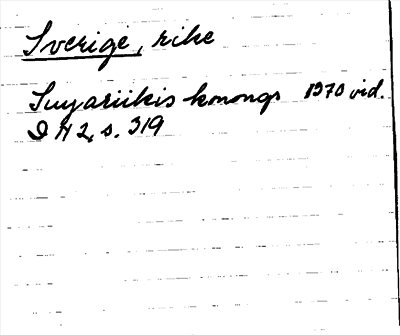 Sverige, rike
Suyariikis konongs 1370 vid.
D H 2, s. 319